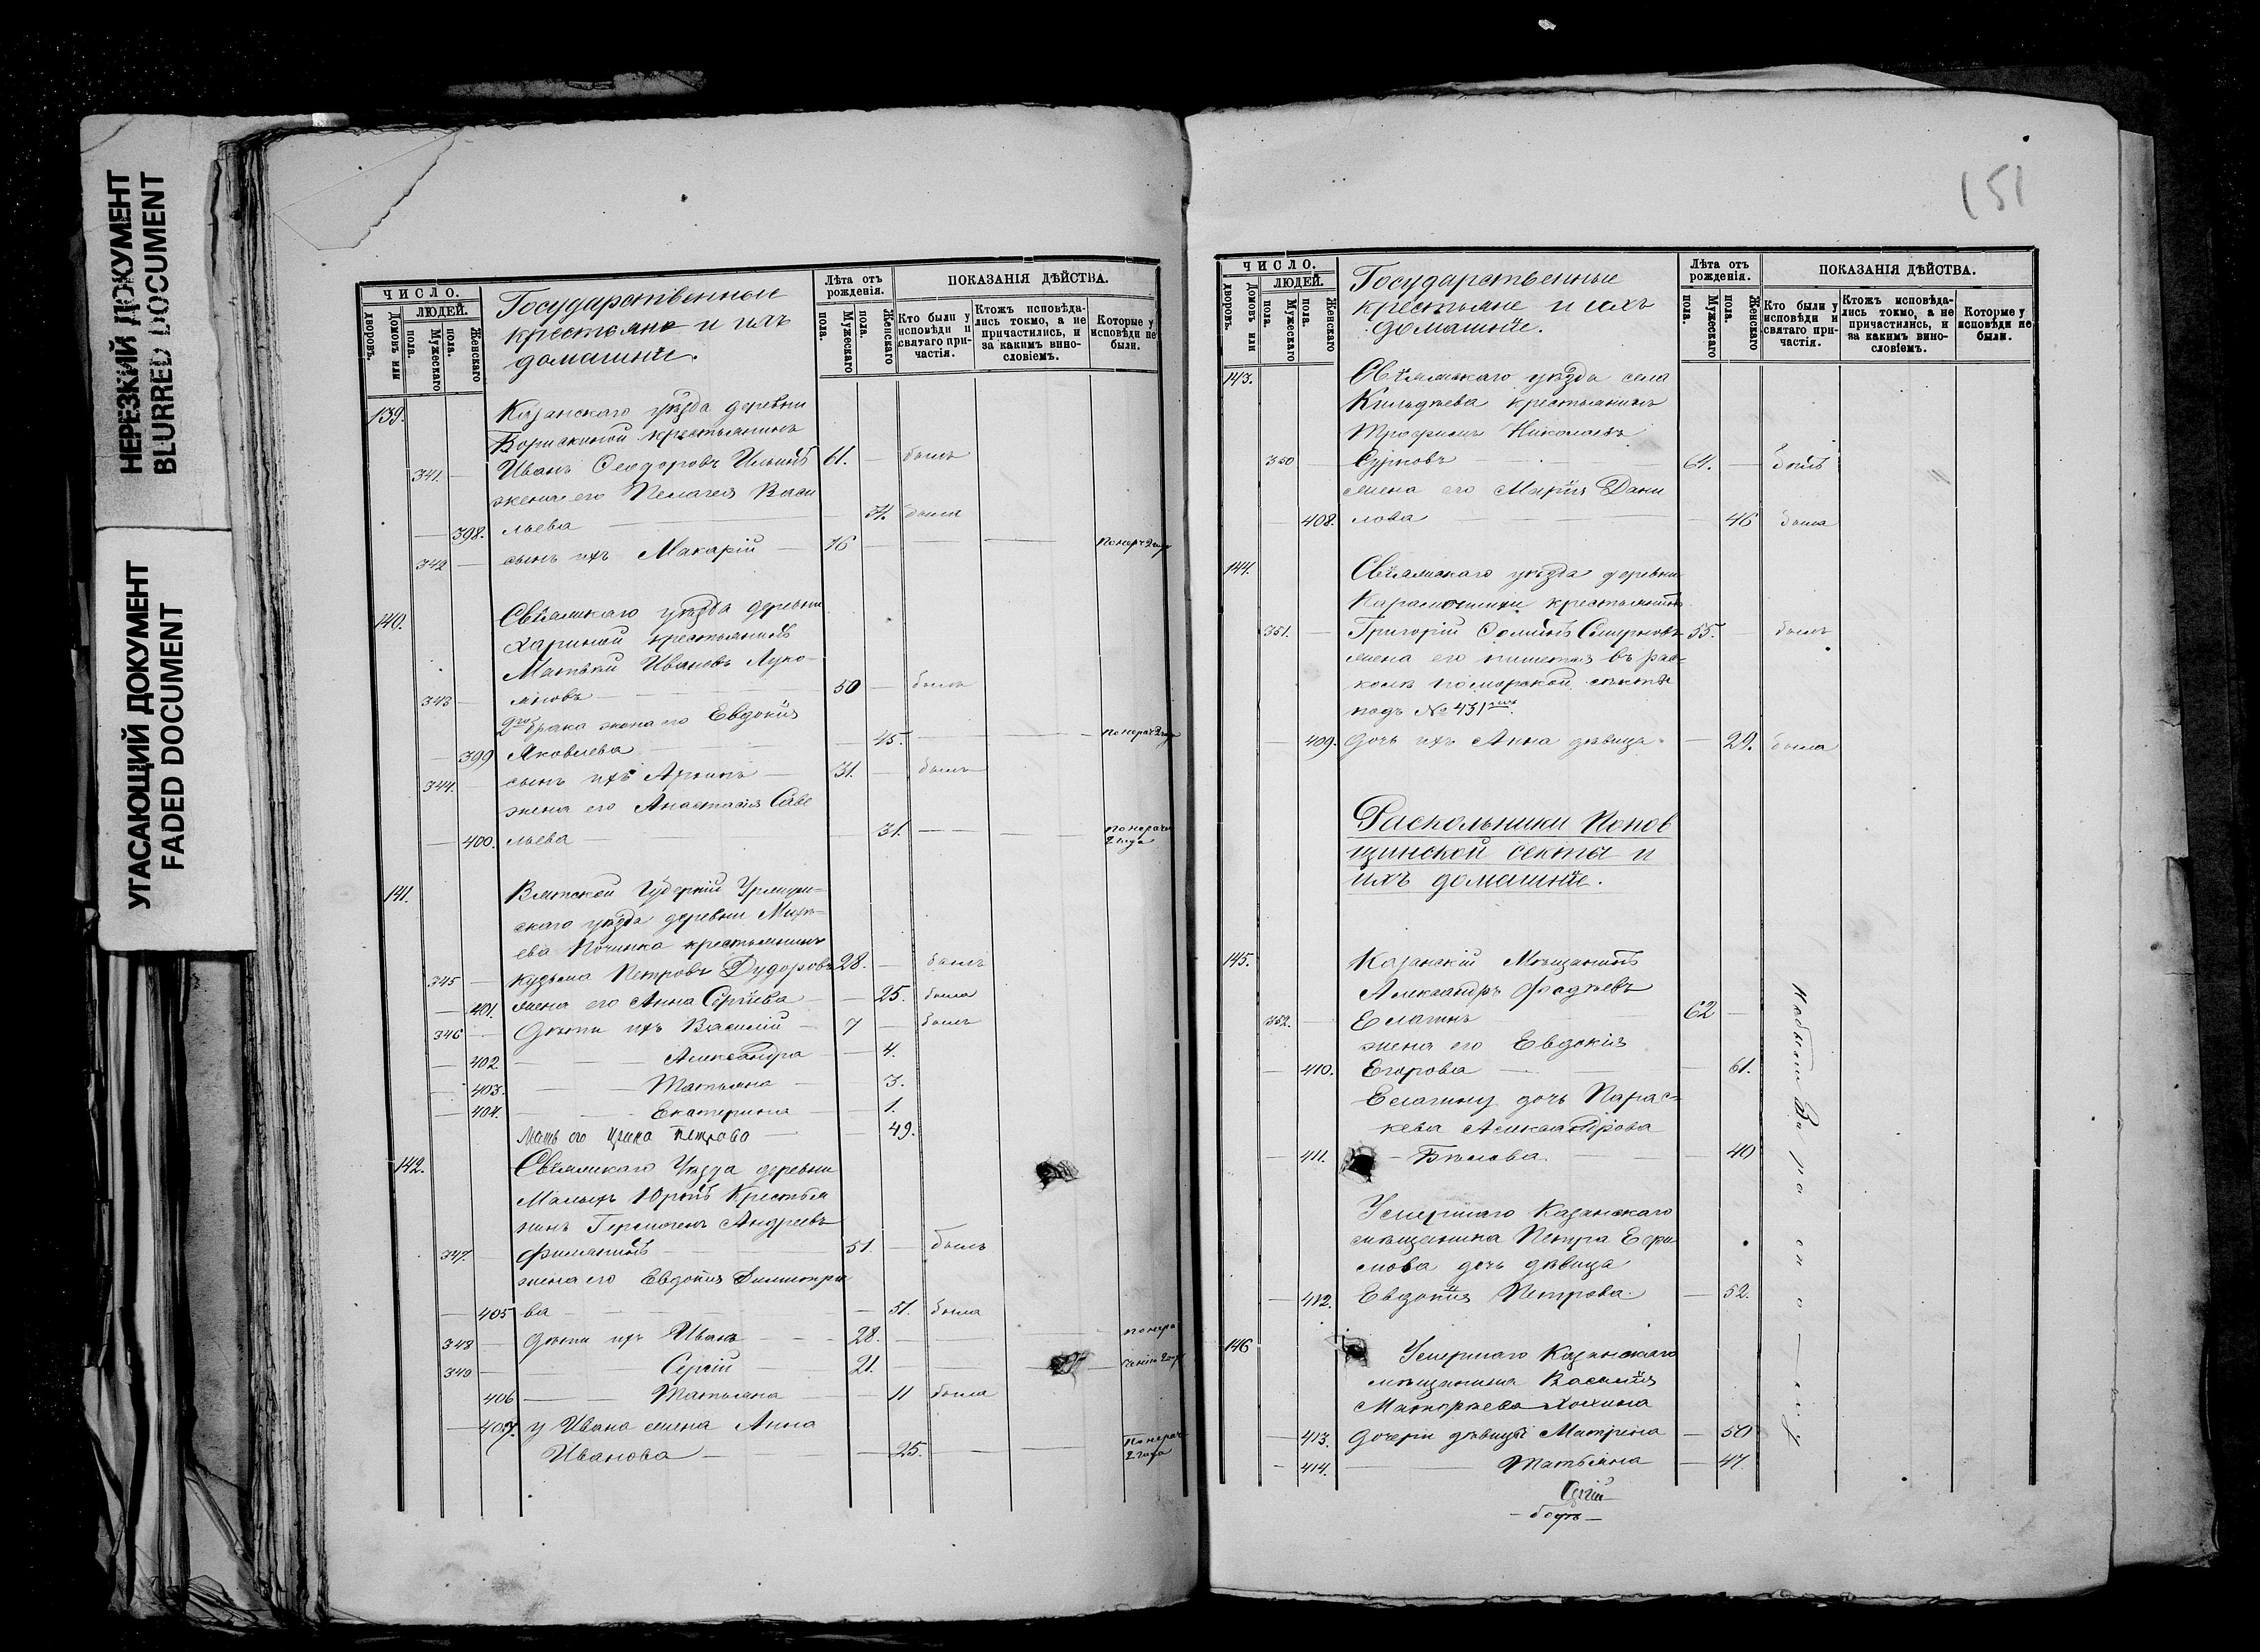 НЕРЕЗКИЙ ДОКУМЕНТ
BLURRED DOCUMENT
УГАСАЮЩИЙ ДОКУМЕНТ
FADED DOCUMENT
ЧИСЛО.
ЛЮДЕЙ.
Домовъ или дворовъ.
Мужескаго пола.
Женскаго пола.
Государственные
крестьяне и ихъ
домашніе.
Лѣта отъ рожденія.
Мужескаго пола.
Женскаго пола.
ПОКАЗАНІЯ ДѢЙСТВА.
Кто были у исповѣди и святаго причастія.
Ктожъ исповѣдались токмо, а не причастились, и за какимъ винословіемъ.
Которые у исповѣди не были.
139. Казанскаго уѣзда деревни
Борискиной крестьянинъ
341. Иванъ Ѳеодоровъ Ильинъ 61. былъ
жена его Пелагея Васи
398. льева была
342 сынъ ихъ Макарій 16
140. Свіяжскаго уѣзда деревни
Хариной крестьянинъ
Матвѣй Ивановъ Луко-
343 яновъ 50 былъ
2го брака жена его Евдокія
399 Яковлева 45. по нерач 2 года
344. сынъ ихъ Архипъ 31. былъ
жена его Анастасія Саве
400. льева 31. по нерач 2 года
141. Вятской Губерніи Уржум-
скаго уѣзда деревни Михѣ-
ева Починка крестьянинъ
345 Кузьма Петровъ Дудоровъ 28. былъ
401. жена его Анна Сергіева 25. была
346 Дѣти ихъ Василій 7 былъ
402 Александра 4.
403. Татьяна 3.
404. Екатерина 1.
Мать его Ирина Петрова 49.
142. Свіяжскаго Уѣзда деревни
Малыхъ Юртъ Крестья
нинъ Гермогенъ Андреевъ
347. Филянинъ 51. былъ
жена его Евдокія Димитріе
405 ва 51. была
348 Дѣти ихъ Иванъ 28. по нера
349 Сергій 21. ченію 2 года
406 Татьяна 11 была
407. у Ивана жена Анна
Иванова 25. По нерач 2 года
151
ЧИСЛО.
ЛЮДЕЙ.
Домовъ или дворовъ.
Мужескаго пола.
Женскаго пола.
Государственные
крестьяне и ихъ
домашніе.
Лѣта отъ рожденія.
Мужескаго пола.
Женскаго пола.
ПОКАЗАНІЯ ДѢЙСТВА.
Кто были у исповѣди и святаго причастія.
Ктожъ исповѣдались токмо, а не причастились, и за какимъ винословіемъ.
Которые у исповѣди не были.
143. Свіяжскаго уѣзда села
Кильдѣева крестьянинъ
Трофимъ Николаевъ
350 Сурковъ былъ
жена его Марія Дани
408. лова 46 была
144. Свіяжскаго уѣзда деревни
крестьянинъ
351. Григорій Ѳоминъ Смирновъ 55. былъ
жена его пишется въ рас-
колѣ поморской секты
подъ № 431
409. Дочь ихъ Анна дѣвица 29. была
Раскольники Попов
щинской секты и
ихъ домашніе.
145. Казанскій Мѣщанинъ
Александръ Фадѣевъ
352. Елагинъ 62
жена его Евдокія
410. Егорова 61.
Елагину дочь Парас-
кева Александрова
411. Бѣлова. 40
Умершаго Казанскаго
мѣщанина Петра Ефи
мова дочь дѣвица
412. Евдокія Петрова. 52.
146 Умершаго Казанскаго
мѣщанина Василія
Матвѣева
413. дочери дѣвицы Матрена 50
414. Татьяна 47.